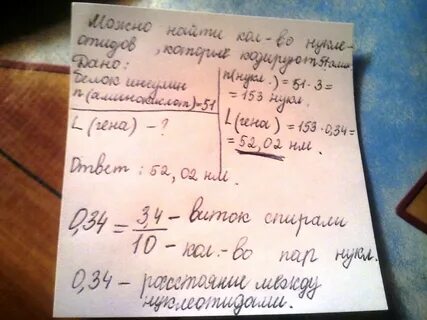 Можно найти кол-во нукле-
отидов, которые кодируют 51 амин.
Дано:
Белок инсулин
n(аминокислот)=51
L (гена) - ?
n(нукл.) = 51·3 =
= 153 нукл.
L(гена) = 153·0,34=
= 52,02 нм.
Ответ: 52,02 нм.
0,34 = 3,4 - виток спирали
10 - кол-во пар нукл.
0,34 - расстояние между
нуклеотидами.